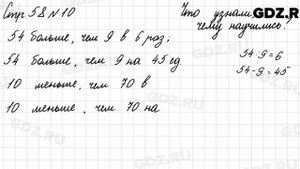 Стр 58 № 10
54 больше, чем 9 в 6 раз;
54 больше, чем 9 на 45 ед
10 меньше, чем 70 в
10 меньше, чем 70 на
Что узнали,
чему научились?
54:9=6
54-9=45
GDZ.R
GDZ.RU